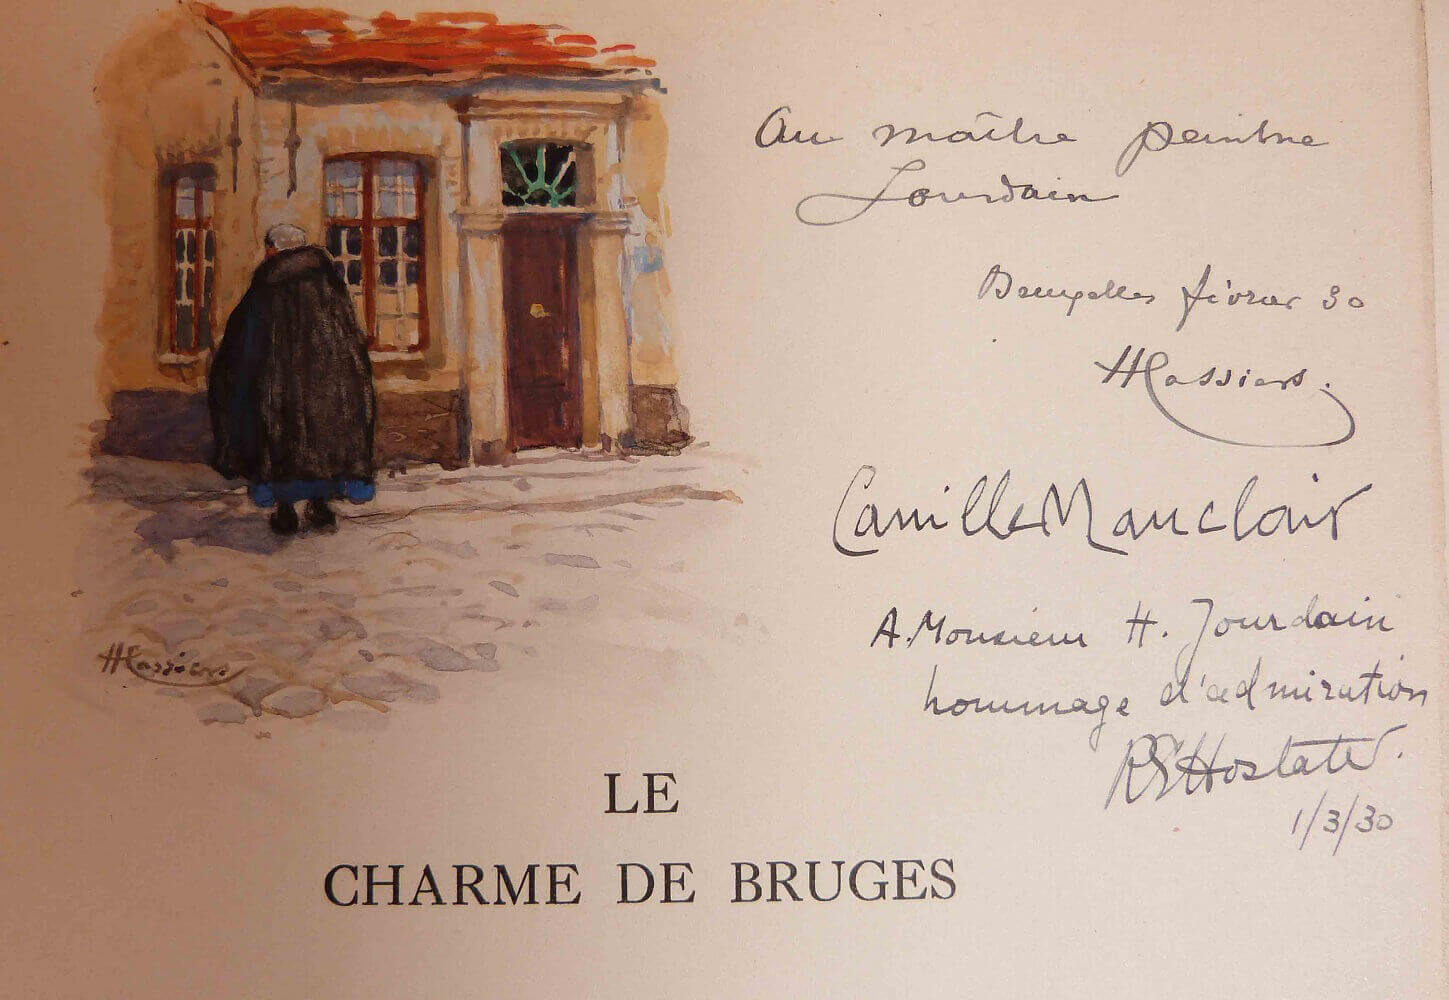 Au maître peintre
Jourdain
Bruxelles février 30
HCassiers.
Camille Mauclair
A. Monsieur H. Jourdain
hommage d'admiration
1/3/30
HCassiers
LE
CHARME DE BRUGES